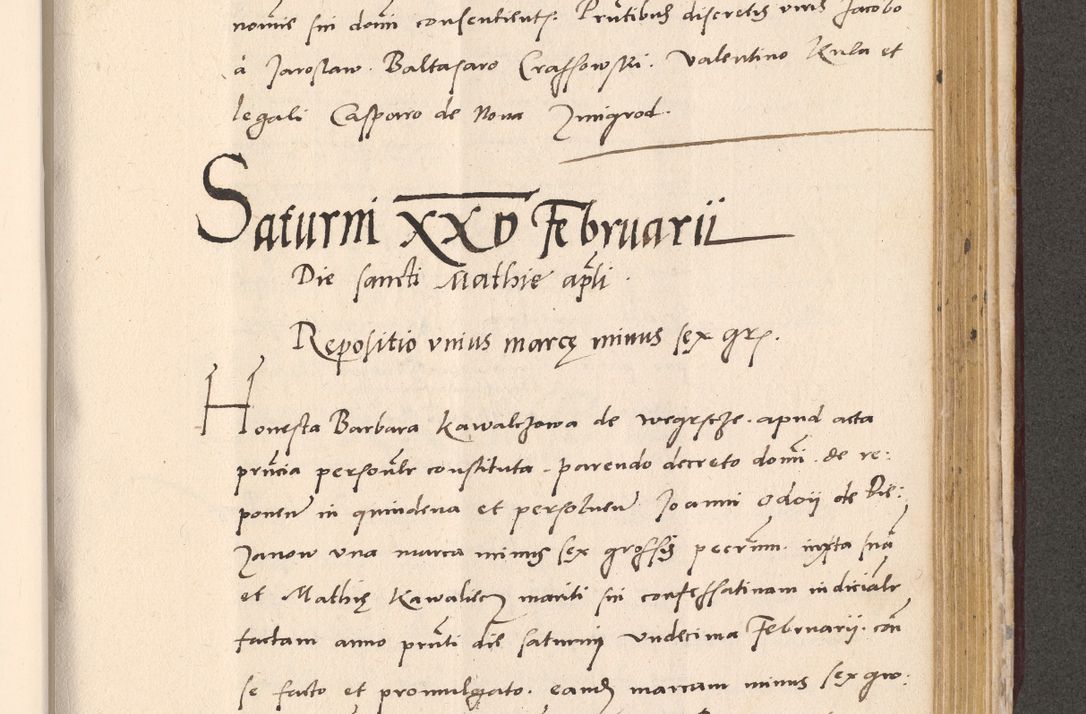 nomīe sui domi consentientꝭ. Prñtibus discretis viris Jacobo
à Jaroslaw. Baltasaro Crassowski. Valentino Kula et
legali Casparo de Nova Zmigrod.
Saturni XXV Februarii
Die sancti Mathie apli.
Repositio unius marcę minus sex grꝭ.
Honesta Barbara Kawalczowa de wegrscze. apud acta
prñcia personlr constituta. parendo decreto domi. de re:
ponen in quindena et persoluen Joanni Odoii de Die:
zanow una marca minus sex grossis pecrum. iuxta suã
et Mathię Kawaliecz mariti sui confessatinam indicialr
factam anno prñti die saturnij undecima Februarij. con
se facto et promulgato. eandē marcam minus sex gro: